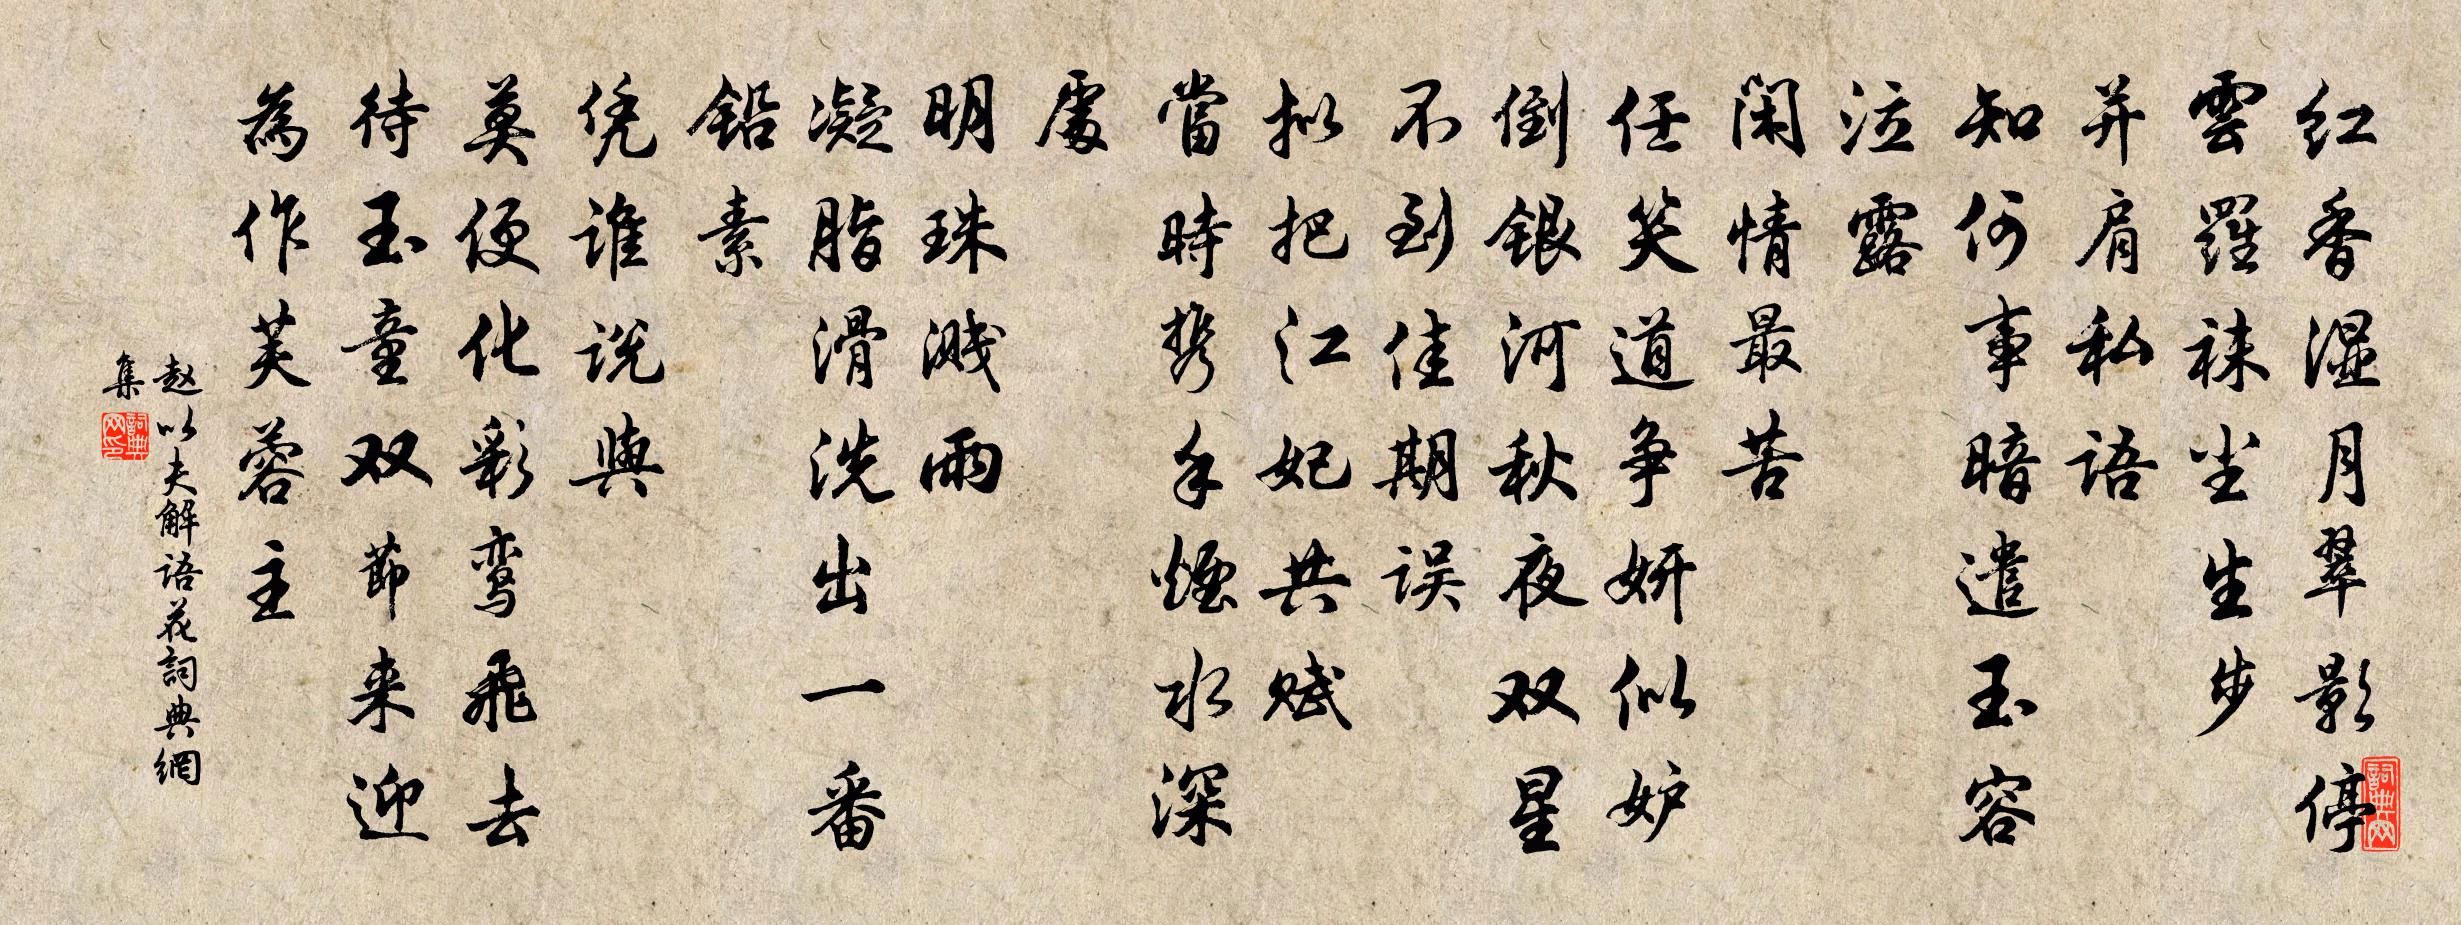 红香湿月翠影停
雲羅袜尘生步
并肩私语
知何事暗遣玉容
泣露
闲情最苦
任笑道争妍似妒
倒银河秋夜双星
不到佳期误
拟把江妃共赋
當時携手煙水深
處
明珠溅雨
凝脂滑洗出一番
铅素
凭谁说與
莫便化彩鸾飛去
待玉童双節来迎
為作芙蓉主
赵以夫解语花詞典網
集
詞典网印
詞典网